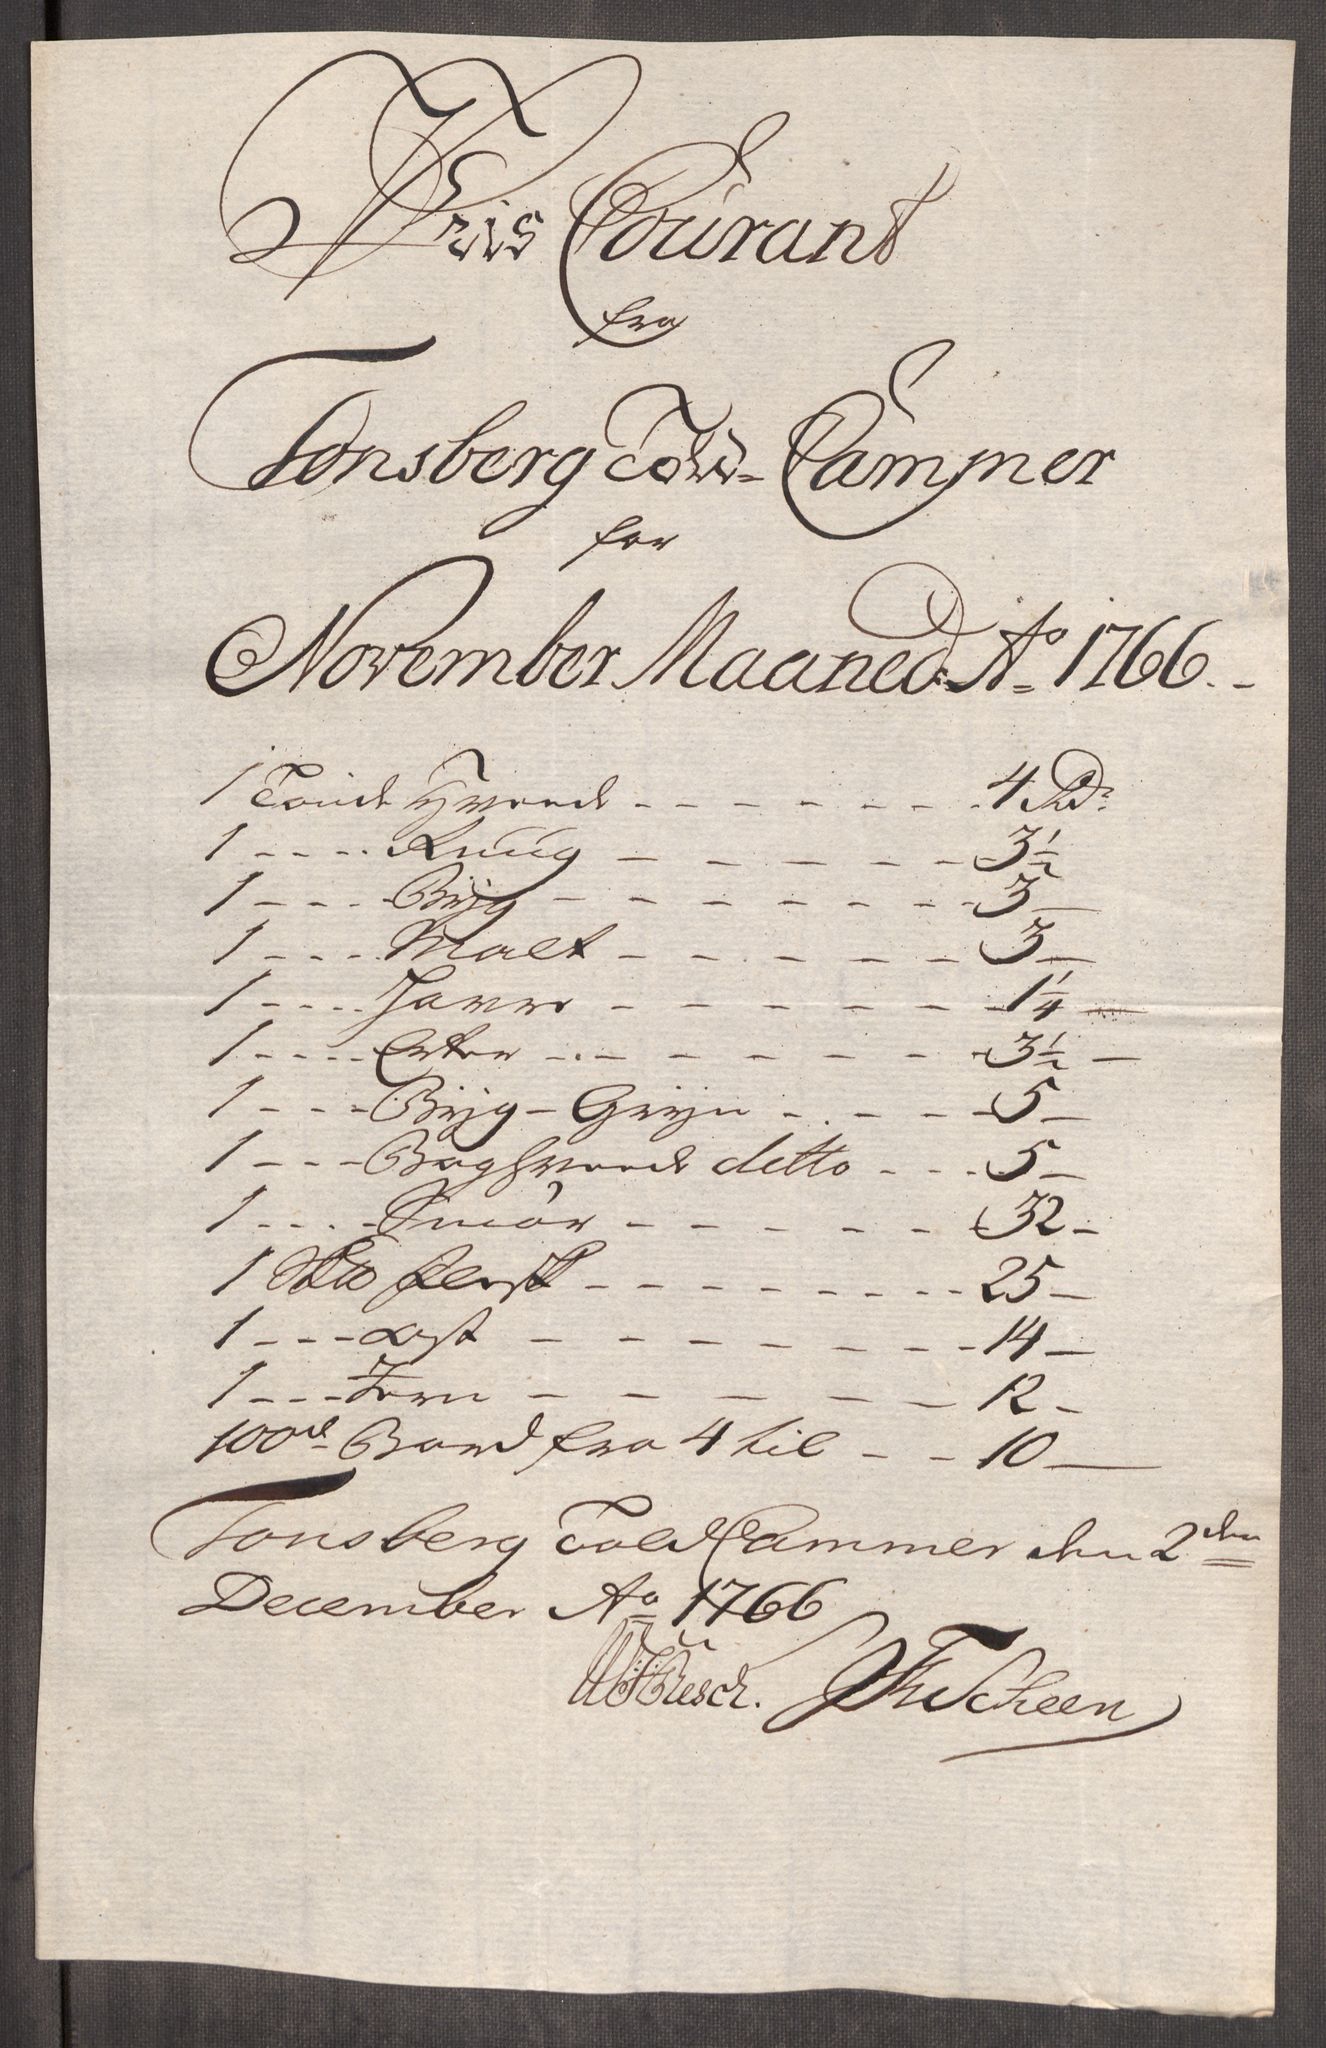 Pris Courant
fra
Tonsberg Told-Cammer
for
November Maaned Ao 1766.
1 Tønde Hvede - - - - - - - 4 Rdr
1 - - - - Ruug - - - - - - 3 1/2
1 - - - - Byg - - - - - - - - 3 -
1 - - - - Malt - - - - - - 3 -
1 - - - - Havre - - - - - - 1 1/4 -
1 - - - - Erter - - - - - - - 3 1/2 -
1 - - - Byg-Gryn - - - - - 5 -
1 - - - Boghvede ditto - - - - 5 -
1 - - - - Smør - - - - - - - 32 -
1 flesk - - - - - - - - 25 -
1 - - - Ost - - - - - - - 14 -
1 - - - Jern - - - - - - 12 -
100de Bord fra 4 til - - - 10 -
Tonsberg Told Cammer den 2den
December Ao 1766
Resch. Scheen